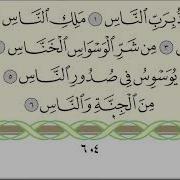 ذُ بِرَبِّ ٱلنَّاسِ ١ مَلِكِ ٱلنَّاسِ
٣ مِن شَرِّ ٱلْوَسْوَاسِ ٱلْخَنَّاسِ
يُوَسْوِسُ فِي صُدُورِ ٱلنَّاسِ ٥
مِنَ ٱلْجِنَّةِ وَٱلنَّاسِ ٦
٦٠٤